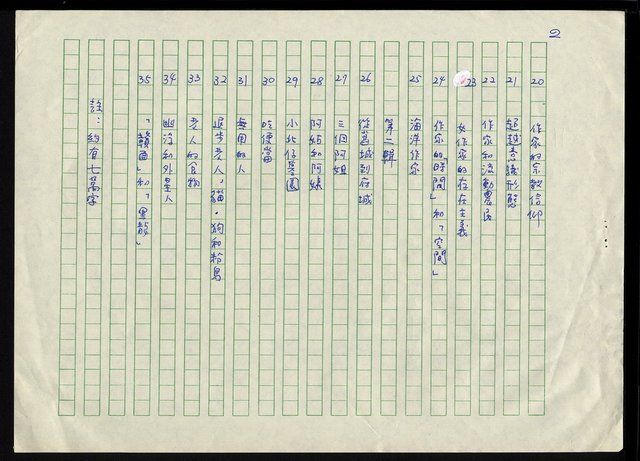 2
20 作家的宗教信仰
21 超越意識形態
22 作家和流動農民
23 女作家的存在主義
24 作家的「時間」和「空間」
25 海洋作家
第二輯
26 從舊城到府城
27 三個阿姐
28 阿姑和阿姨
29 小北仔兵園
30 吃便當
31 無用的人
32 退步老人,貓、狗和粉鳥
33 老人的食物
34 幽浮和外星人
35 「贛面」和「黑韻」
註:約有七萬字